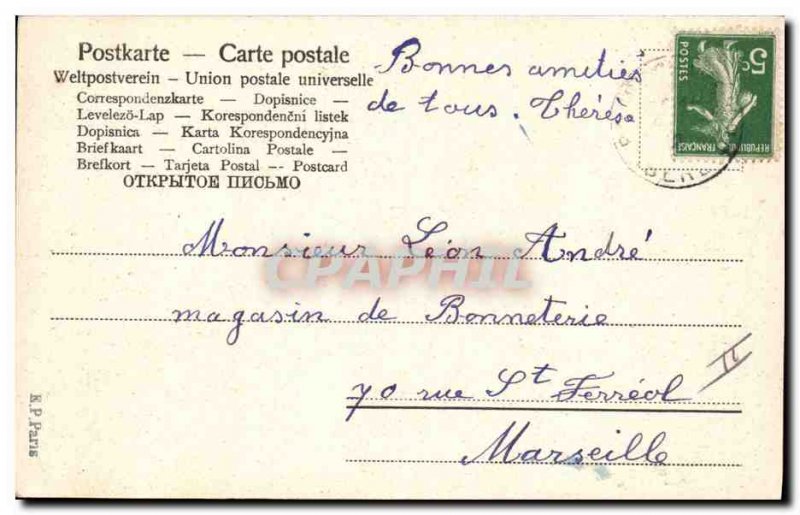 Postkarte — Carte postale
Weltpostverein — Union postale universelle
Correspondenzkarte — Dopisnice —
Levelező-Lap — Korespondenční listek
Dopisnica — Karta Korespondencyjna
Briefkaart — Cartolina Postale —
Brefkort — Tarjeta Postal — Postcard
ОТКРЫТОЕ ПИСЬМО
Bonnes amitiés
de tous. Thérèse
5c
POSTES
REPUBLIQUE FRANÇAISE
Monsieur Léon André
CPAPHIL
magasin de Bonneterie
70 rue St Ferréol
Marseille
II
K.P.Paris